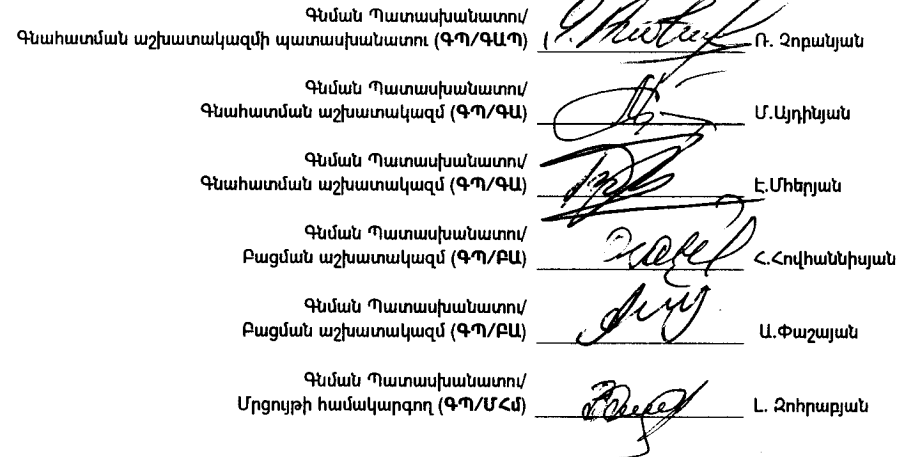 Գնման Պատասխանատու/
Գնահատման աշխատակազմի պատասխանատու (ԳՊ/ԳԱՊ) Ռ. Չոբանյան
Գնման Պատասխանատու/
Գնահատման աշխատակազմ (ԳՊ/ԳԱ) Մ.Այդինյան
Գնման Պատասխանատու/
Գնահատման աշխատակազմ (ԳՊ/ԳԱ) Է.Միհերյան
Գնման Պատասխանատու/
Բացման աշխատակազմ (ԳՊ/ԲԱ) Հ.Հովհաննիսյան
Գնման Պատասխանատու/
Բացման աշխատակազմ (ԳՊ/ԲԱ) Ա.Փաշայան
Գնման Պատասխանատու/
Մրցույթի համակարգող (ԳՊ/ՄՀմ) Լ. Զոհրաբյան